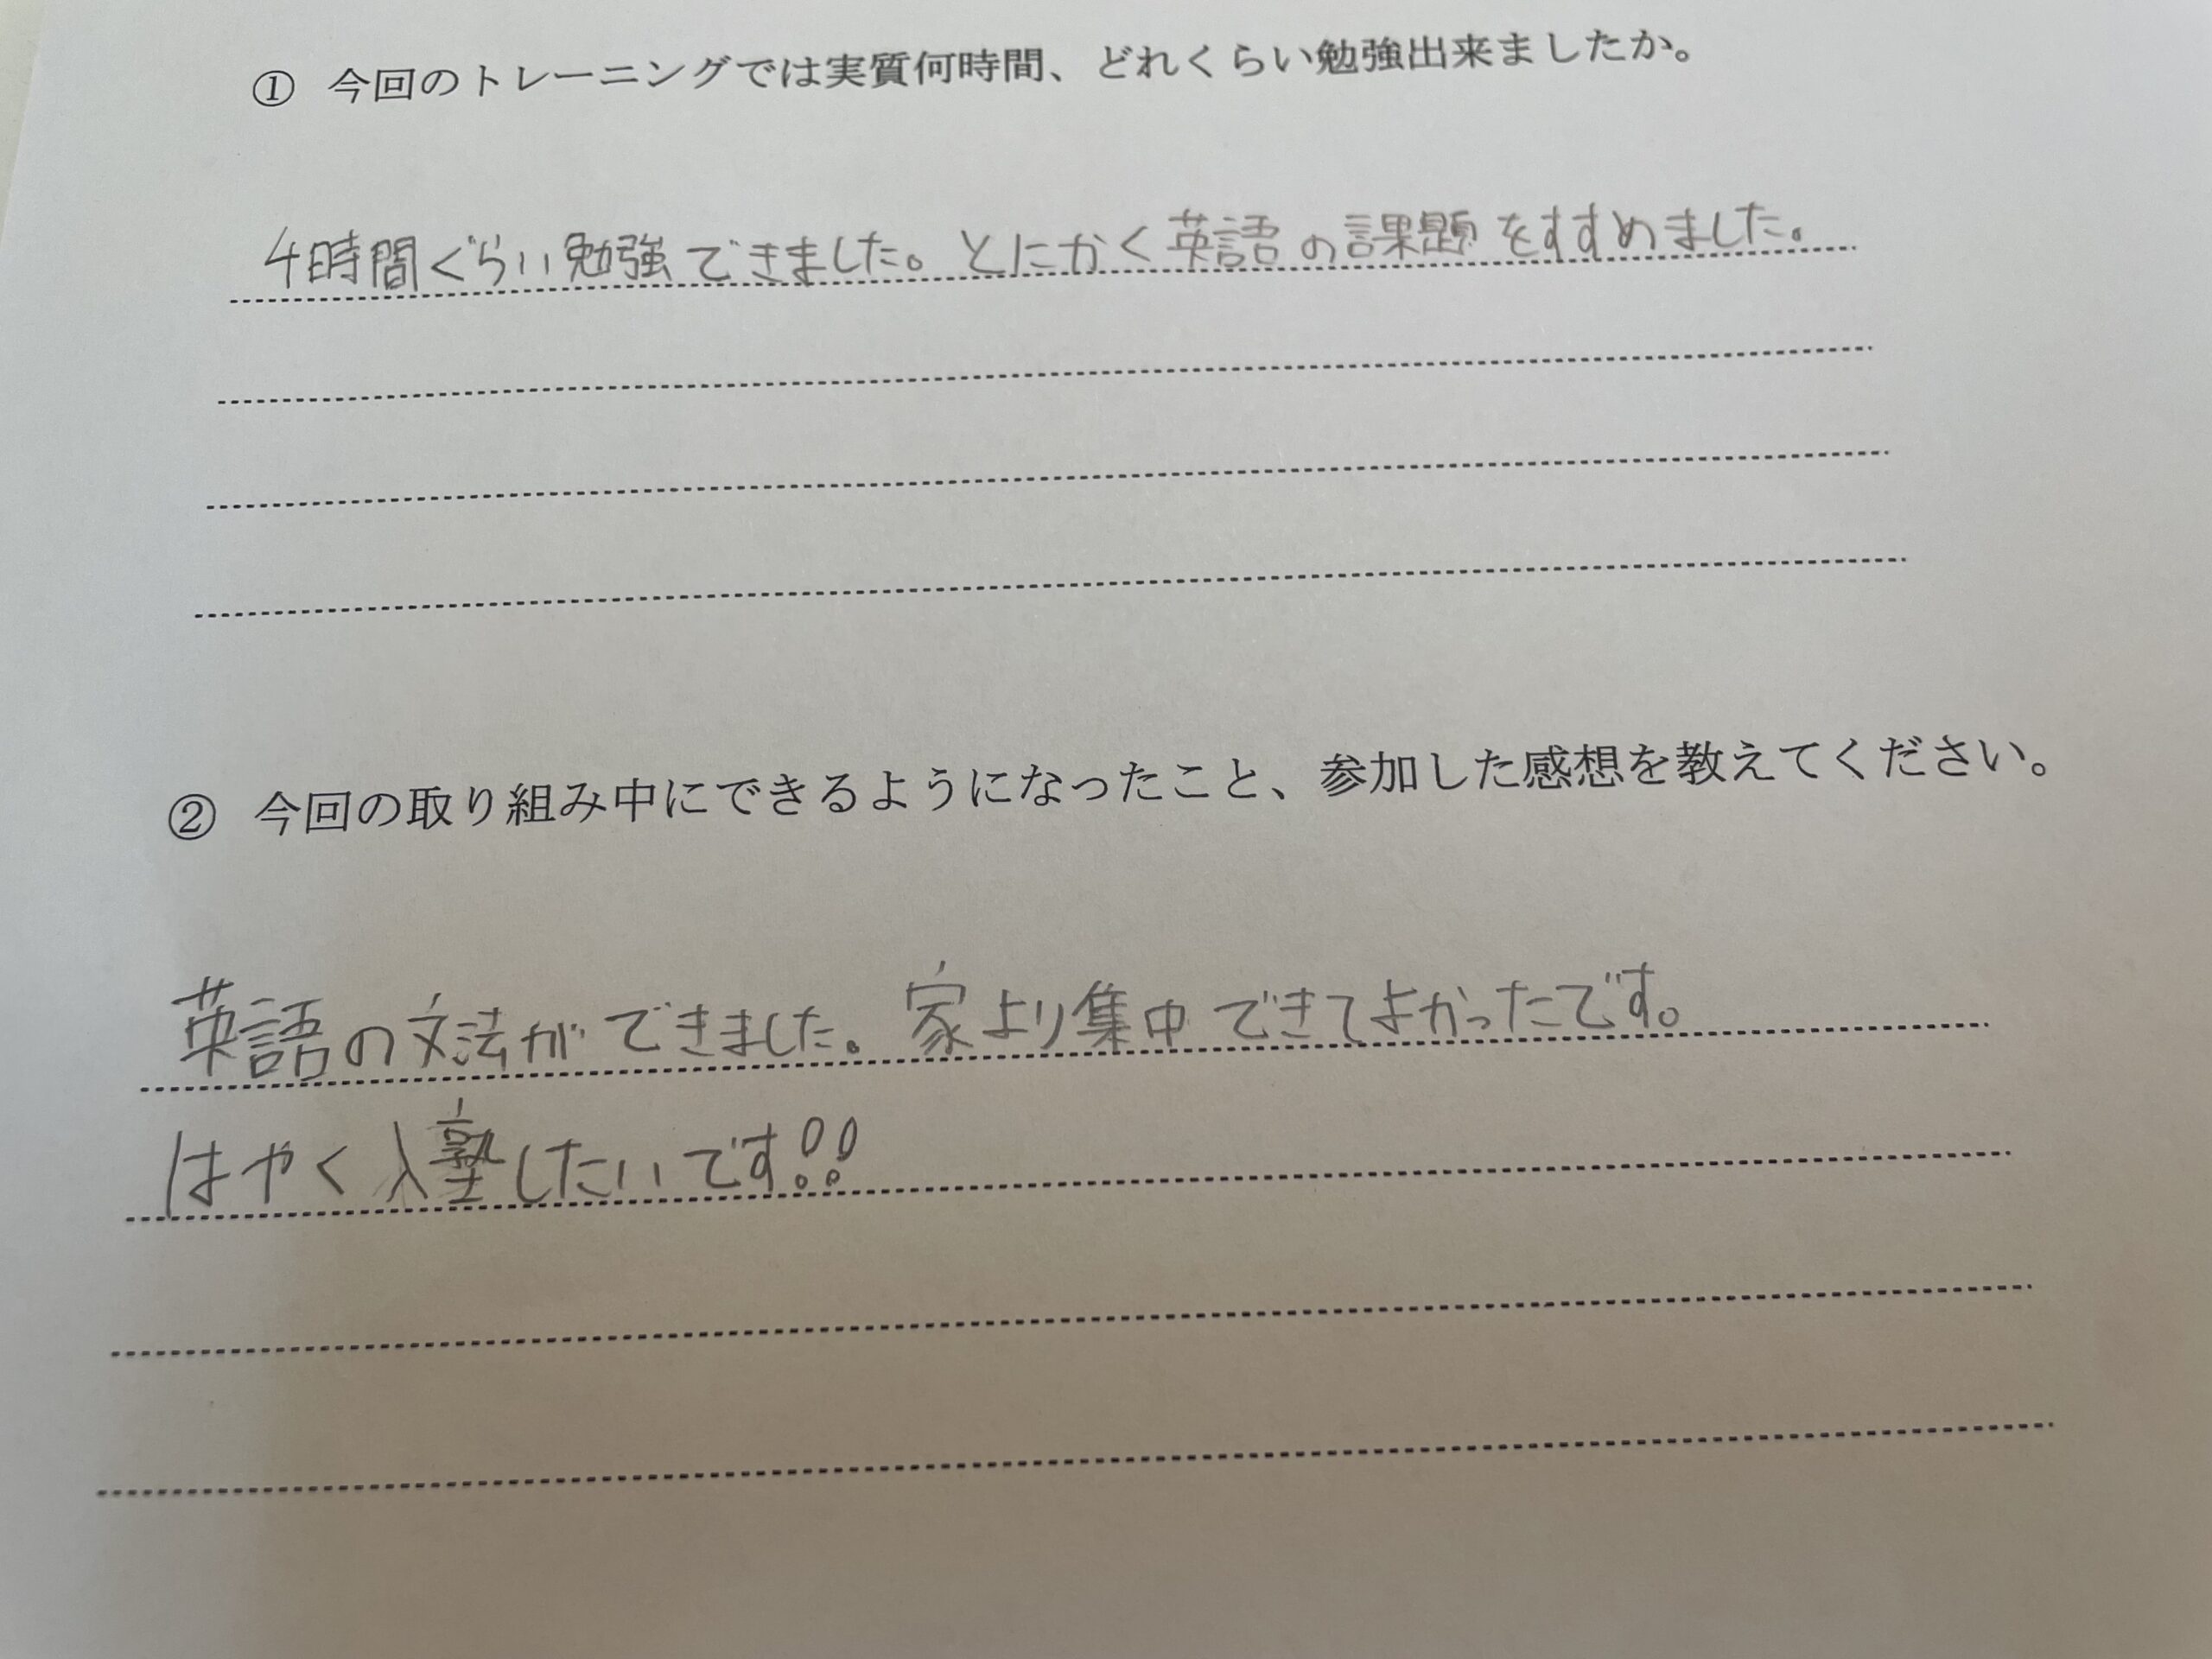 ① 今回のトレーニングでは実質何時間、どれくらい勉強出来ましたか。
4時間ぐらい勉強できました。とにかく英語の課題をすすめました。
② 今回の取り組み中にできるようになったこと、参加した感想を教えてください。
英語の文法ができました。家より集中できてよかったです。
はやく入塾したいです!!